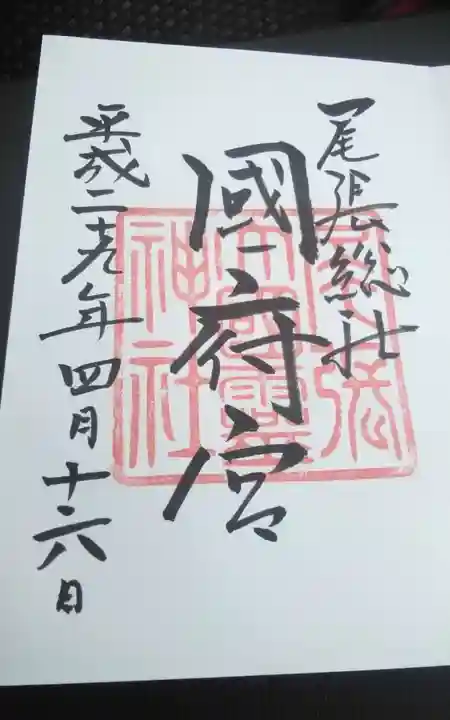 尾張総社
國府宮
平成二十九年四月十六日
尾張
大國霊
神社